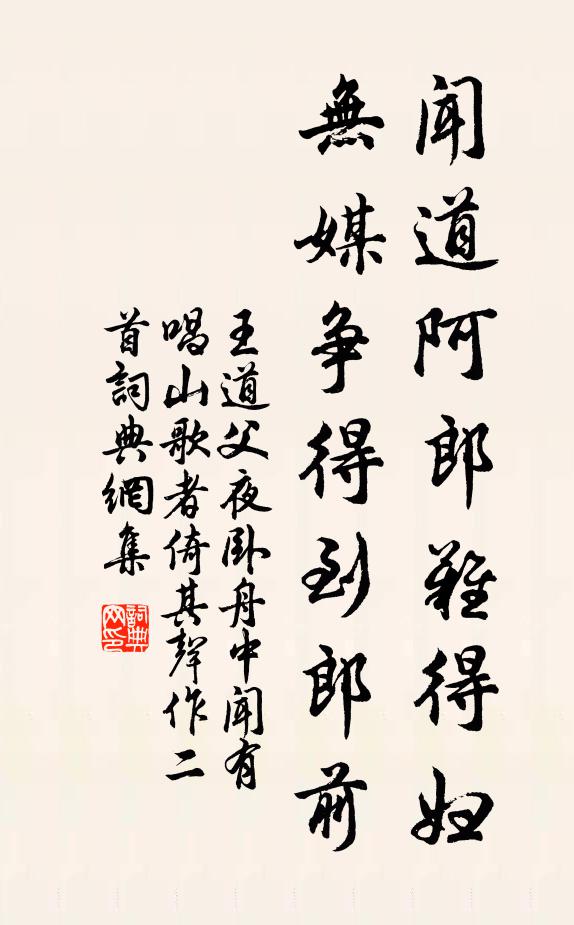 聞道阿郎難得婦
無媒爭得到郎前
王道父夜臥舟中聞有
唱山歌者倚其聲作二
首詞典網集
詞典網印